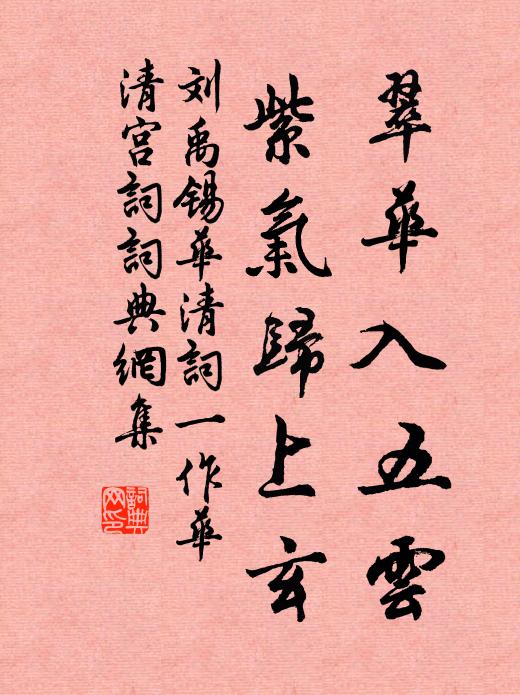 翠華入五雲
紫氣歸上玄
刘禹锡華清詞一作華
清宫詞詞典網集
詞典
网印